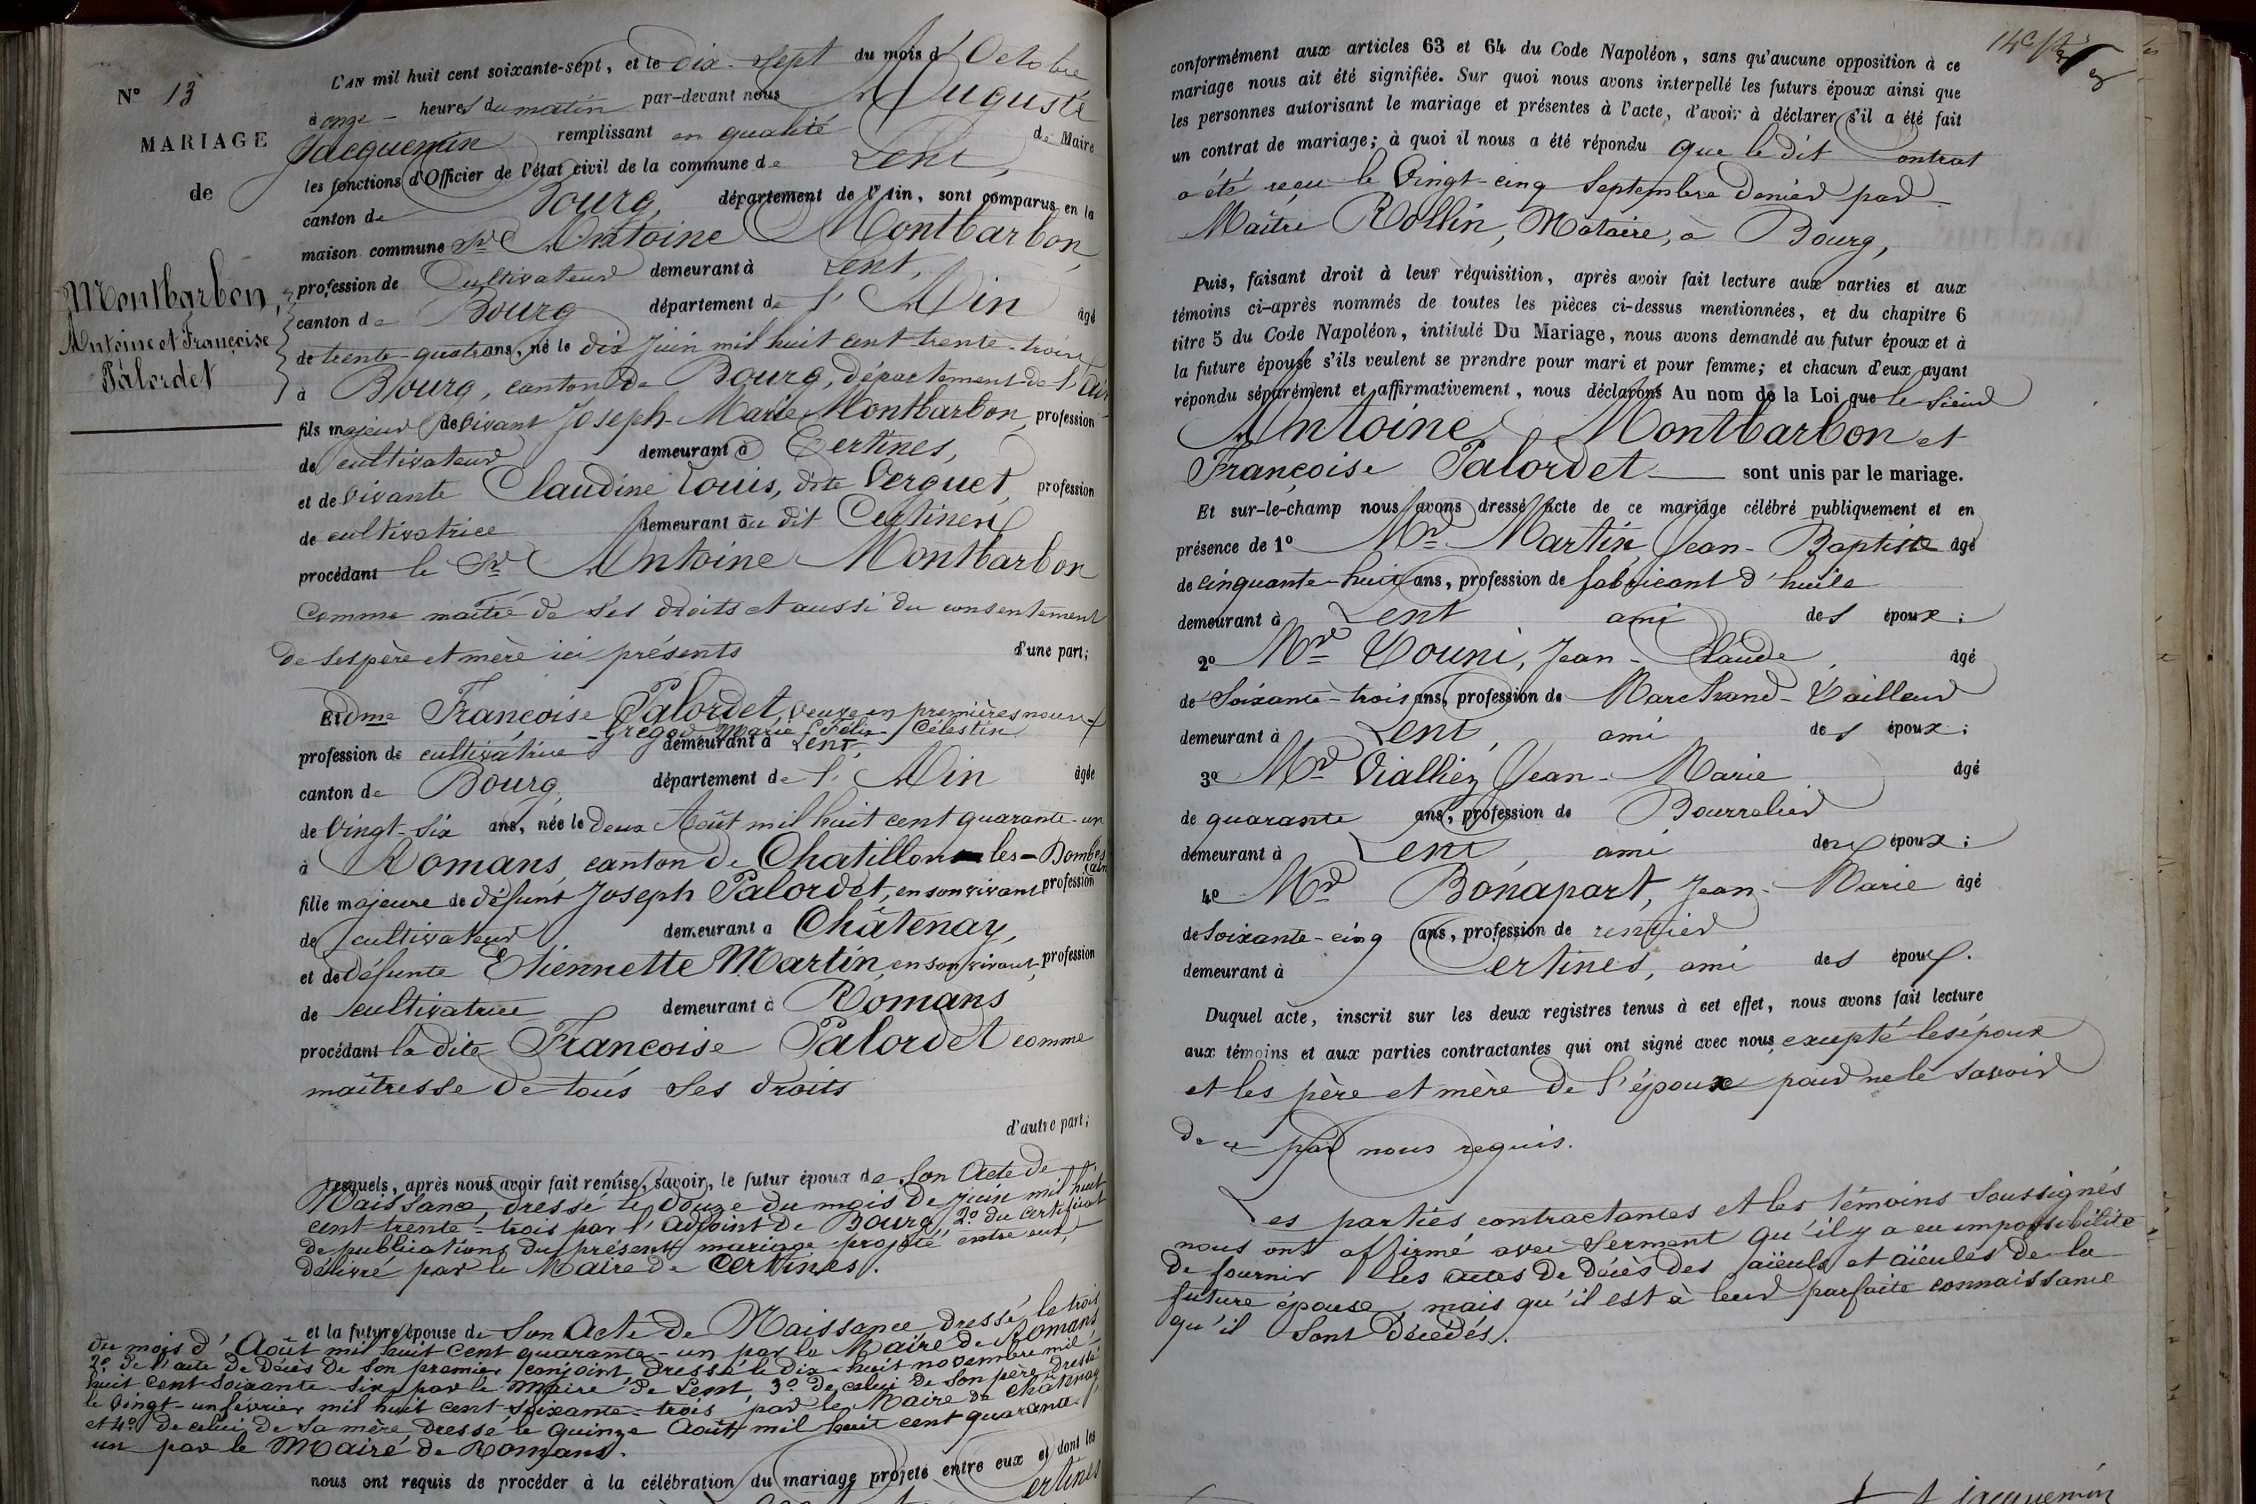 N° 13
MARIAGE
de
Montbarbon,
Antoine et Françoise
Palordet
L'AN mil huit cent soixante-sept, et le dix-sept du mois d'Octobre
à onze heures du matin par-devant nous Auguste
Jacquemin remplissant en qualité de Maire
les fonctions d'Officier de l'état civil de la commune de Lent,
canton de Bourg, département de l'Ain, sont comparus en la
maison commune Sr Antoine Montbarbon,
profession de Cultivateur demeurant à Lent,
canton de Bourg département de l'Ain âgé
de trente-quatre ans, né le dix juin mil huit cent trente-trois
à Bourg, canton de Bourg, département de l'Ain
fils majeur de vivant Joseph-Marie Montbarbon, profession
de cultivateur demeurant à Certines,
et de vivante Claudine Louis, dite Verguet, profession
de cultivatrice demeurant au dit Certines
procédant le Sr Antoine Montbarbon
comme maître de ses droits et aussi du consentement
de ses père et mère ici présents d'une part;
Et dme Françoise Palordet, veuve en premières noces
Marie Félix Célestin
profession de cultivatrice demeurant à Lent,
canton de Bourg, département de l'Ain âgée
de Vingt-six ans, née le deux Août mil huit cent quarante-un
à Romans, canton de Chatillon les-Dombes
(Ain)
fille majeure de défunt Joseph Palordet, en son vivant profession
de cultivateur demeurant à Châtenay,
et de défunte Etiennette Martin, en son vivant, profession
de cultivatrice demeurant à Romans
procédant la dite Françoise Palordet comme
maîtresse de tous ses droits
d'autre part;
Lesquels, après nous avoir fait remise, savoir, le futur époux de son Acte de
Naissance, dressé le douze du mois de juin mil huit
cent trente-trois par l'adjoint de Bourg, 2° du certificat
de publications du présent mariage projeté entre eux,
délivré par le Maire de Certines.
et la future épouse de son Acte de Naissance dressé le trois
du mois d'Août mil huit cent quarante-un par le Maire de Romans
2° de l'acte de décès de son premier conjoint, dressé le dix-huit novembre mil
huit cent soixante-six par le Maire de Lent, 3° de celui de son père dressé
le vingt-un février mil huit cent soixante-trois par le Maire de Châtenay
et 4° de celui de sa mère, dressé le quinze Août mil huit cent quarante
un par le Maire de Romans.
nous ont requis de procéder à la célébration du mariage projeté entre eux et dont les
Certines
conformément aux articles 63 et 64 du Code Napoléon, sans qu'aucune opposition à ce
mariage nous ait été signifiée. Sur quoi nous avons interpellé les futurs époux ainsi que
les personnes autorisant le mariage et présentes à l'acte, d'avoir à déclarer s'il a été fait
un contrat de mariage; à quoi il nous a été répondu que le dit Contrat
a été reçu le Vingt-cinq Septembre dernier par
Maître Rollin, Notaire, à Bourg,
Puis, faisant droit à leur réquisition, après avoir fait lecture aux parties et aux
témoins ci-après nommés de toutes les pièces ci-dessus mentionnées, et du chapitre 6
titre 5 du Code Napoléon, intitulé Du Mariage, nous avons demandé au futur époux et à
la future épouse s'ils veulent se prendre pour mari et pour femme; et chacun d'eux ayant
répondu séparément et affirmativement, nous déclarons Au nom de la Loi que le Sieur
Antoine Montbarbon et
Françoise Palordet sont unis par le mariage.
Et sur-le-champ nous avons dressé acte de ce mariage célébré publiquement et en
présence de 1° Mr Martin Jean-Baptiste âgé
de cinquante-huit ans, profession de fabricant d'huile
demeurant à Lent ami des époux;
2° Mr Touni, Jean-Claude, âgé
de soixante-trois ans, profession de Marchand-Tailleur
demeurant à Lent, ami des époux;
3° Mr Vialliez Jean-Marie âgé
de quarante ans, profession de Bourrelier
demeurant à Lent, ami des époux;
4e Mr Bonapart, Jean-Marie âgé
de soixante-cinq ans, profession de rentier
demeurant à Certines, ami des époux.
Duquel acte, inscrit sur les deux registres tenus à cet effet, nous avons fait lecture
aux témoins et aux parties contractantes qui ont signé avec nous, excepté les époux
et les père et mère de l'époux pour ne le savoir
de ce par nous requis.
Les parties contractantes et les témoins soussignés
nous ont affirmé avec serment qu'il y a eu impossibilité
de fournir les actes de décès des aïeuls et aïeules de la
future épouse, mais qu'il est à leur parfaite connaissance
qu'il sont décédés.
A Jacquemin